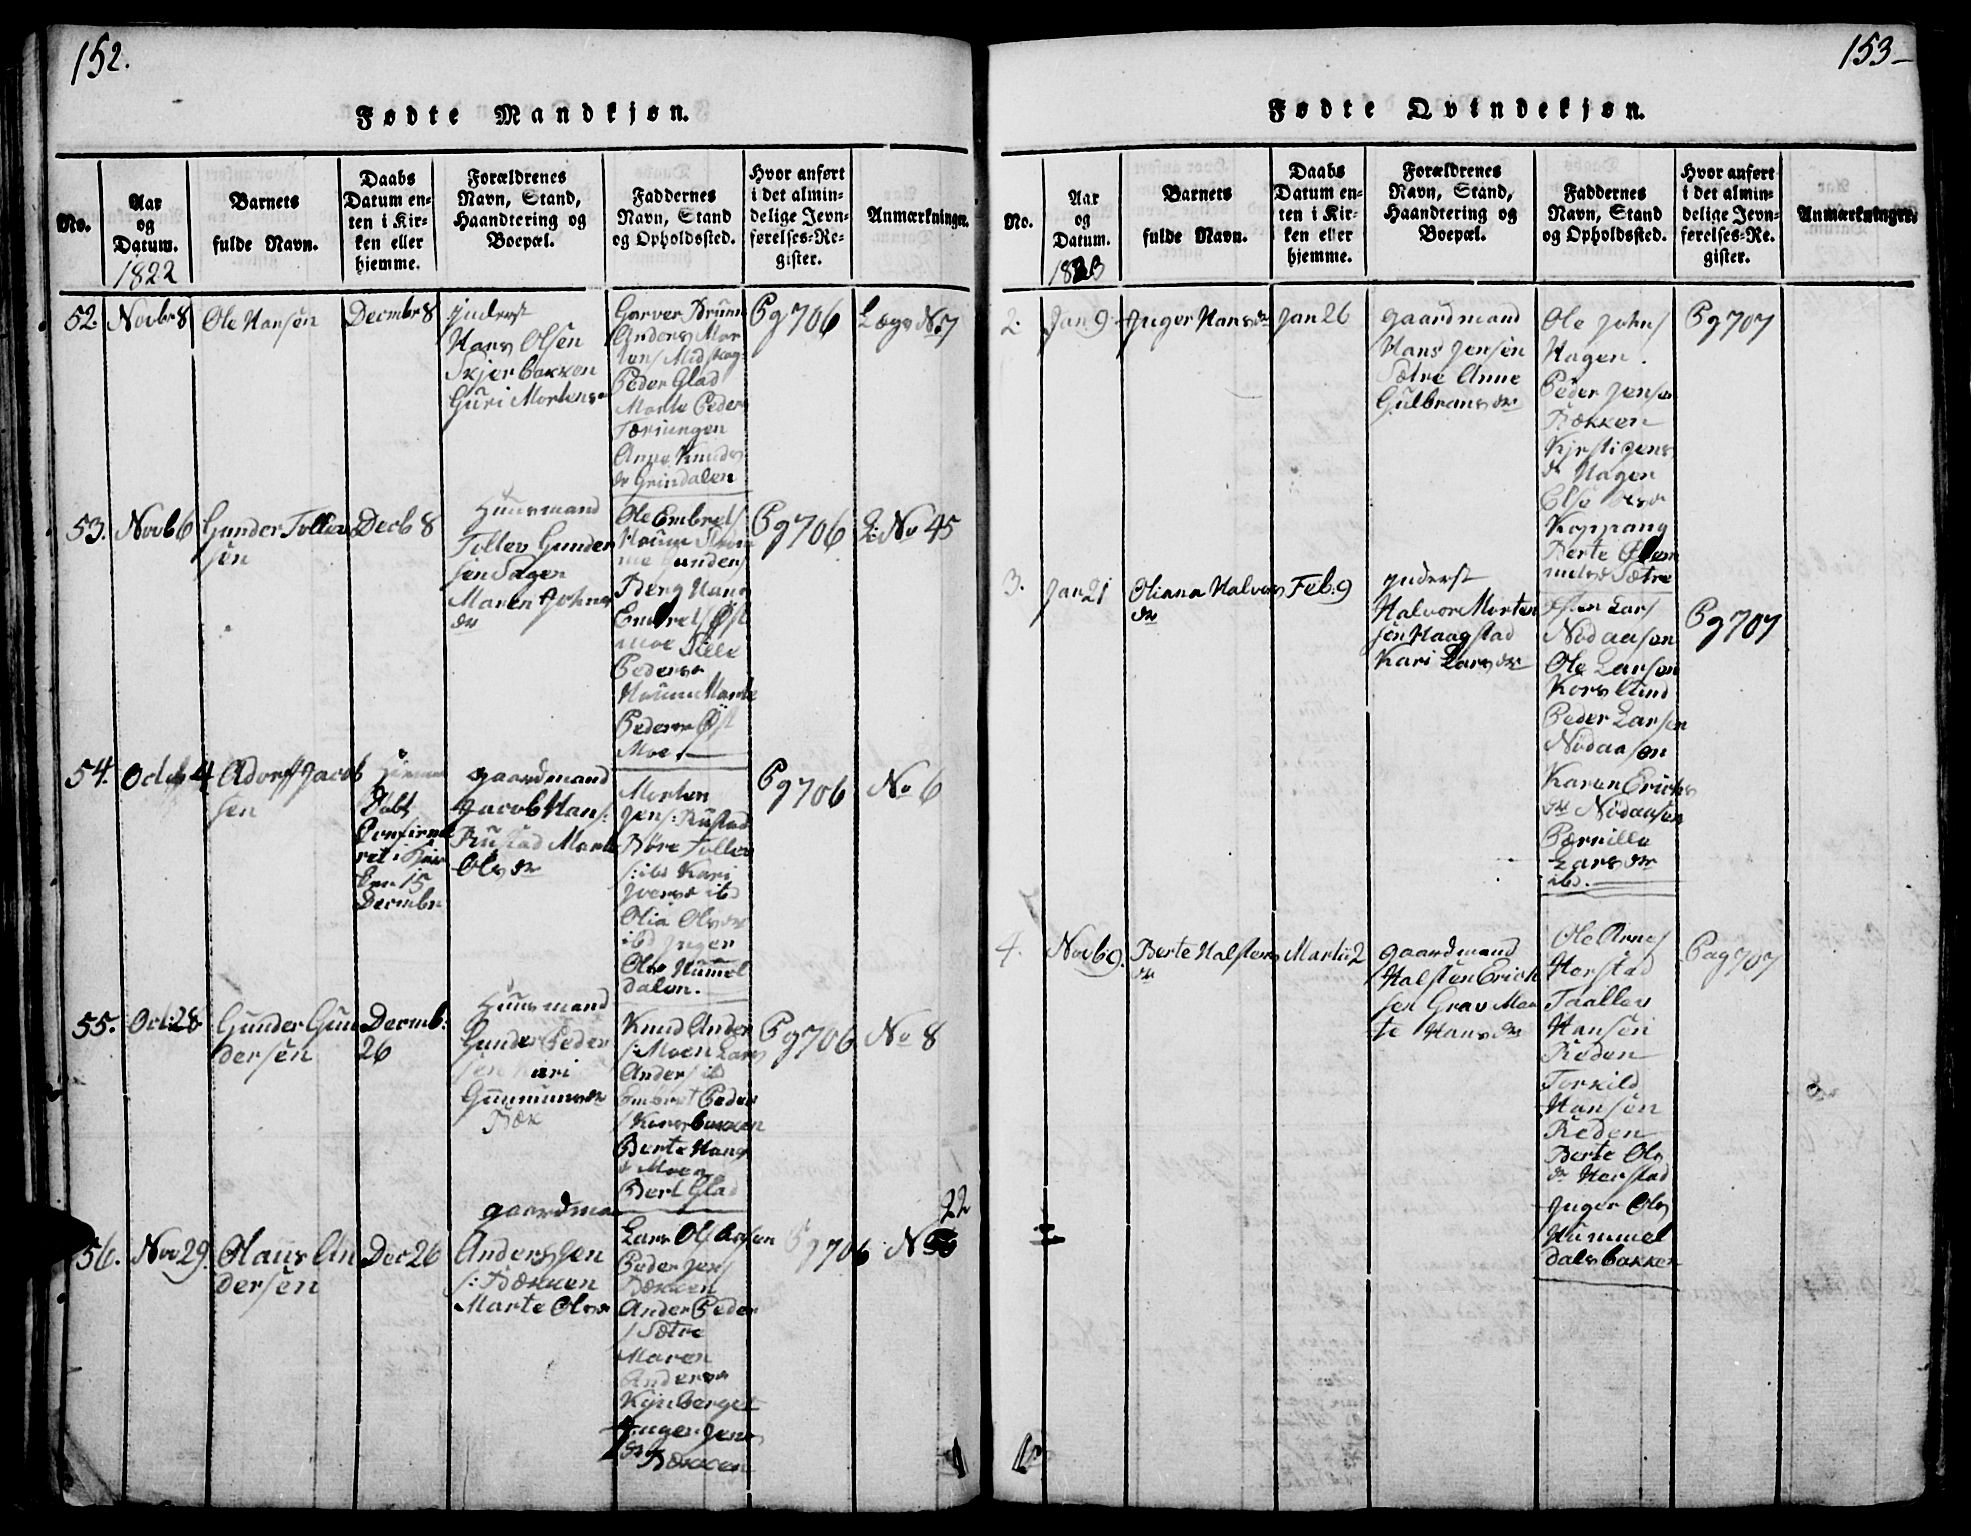 152.
Fødte Mandkjøn.
No.
Aar og Datum.
1822
Barnets fulde Navn.
Daabs Datum enten i Kirken eller hjemme.
Forældrenes Navn, Stand, Haandtering og Boepæl.
Faddernes Navn, Stand og Opholdssted.
Hvor anført i det almindelige Jevnførelses-Register.
Anmærkninger.
52.
Novbr 8
Ole Hansen
Decmbr 8
Inderst
Hans Olsen
Skjerbakken
Guri Mortens
Peder Glad
Marte Peders
Anne Knuds
dr Grindalen
Pg 706
Lægs No 7
53.
Novb 6
Gunder Tollev
sen
Decb 8
Huusmand
Tollev Gunder
sen Sagen
Maren Johns
dr
Ole Embret
Berg Hans
Embrets Øst
moe
Peders
Peders Øst
Moe.
Pg 706
L: No 45
54.
Octb 4
Adorff Jacob
sen
Døbt
Confirme
ret i Kir
ken 15
Decmbr
gaardmand
Jacob Hans:
Rustad Marte
Ols dr
Morten
Jens: Rustad
Børe Tollev
s: ibd Kari
Ivers ibd
Olia Ols dr
ibd Inger
Ols Hummel
dalen.
Pg 706
No 6
55.
Oct: 28
Gunder Gun
dersen
Decmb:
26
Huusmand
Gunder Peder
sen Kari
Gunmunds dr
Bæk
Knud Ander
s: Moen Lars
Anders ibd
Embret Peder
Berte Hans
dr Moen
Bert Glad
Pg 706
No 8
56.
Nov 29.
Olaus An
dersen
Dec 26
gaardman
Anders Jen
s: Bækken
Marte Ols
Lars Ols
Peder Jens
Bækken
Ander Peder
s Sætre
Maren
Anders
Kynberget
Inger Jens
dr Bækken
Pg 706
22
No
153
Fødte Qvindekjøn.
No.
Aar og Datum.
1823
Barnets fulde Navn.
Daabs Datum enten i Kirken eller hjemme.
Forældrenes Navn, Stand, Haandtering og Boepæl.
Faddernes Navn, Stand og Opholdssted.
Hvor anført i det almindelige Jevnførelses-Register.
Anmærkninger.
2.
Jan 9
Inger Hans dr
Jan 26
gaardmand
Hans Jensen
Sætre Anne
Gulbrans dr
Ole Johns
Hagen.
Peder Jensen
Bækken
Kjersti Jens
dr Hagen
Else Ols
Koppang
Berte
Sætre
Pg 707
3.
Jan 21
Oliana Halvors
dr
Feb: 9
Inderst
Halvor Morten
sen Haagstad
Kari Lars dr
Lars
Nødaasen
Ole Larsen
Korslund
Peder Larsen
Nødaasen
Karen Ericks
dr Nødaasen
Pernille
Lars dr
ibd.
Pg 707
4.
Novb 9.
Berte Halstens
dr
Marti 2
gaardmand
Halsten Erick
sen Grav Mar
te Hans dr
Ole Arnes
Herstad
Taallev
Hansen
Reden
Torkild
Hansen
Reden
Berte Ols
dr Herstad
Inger Ols
Hummel
dalsbakken
Pag 707